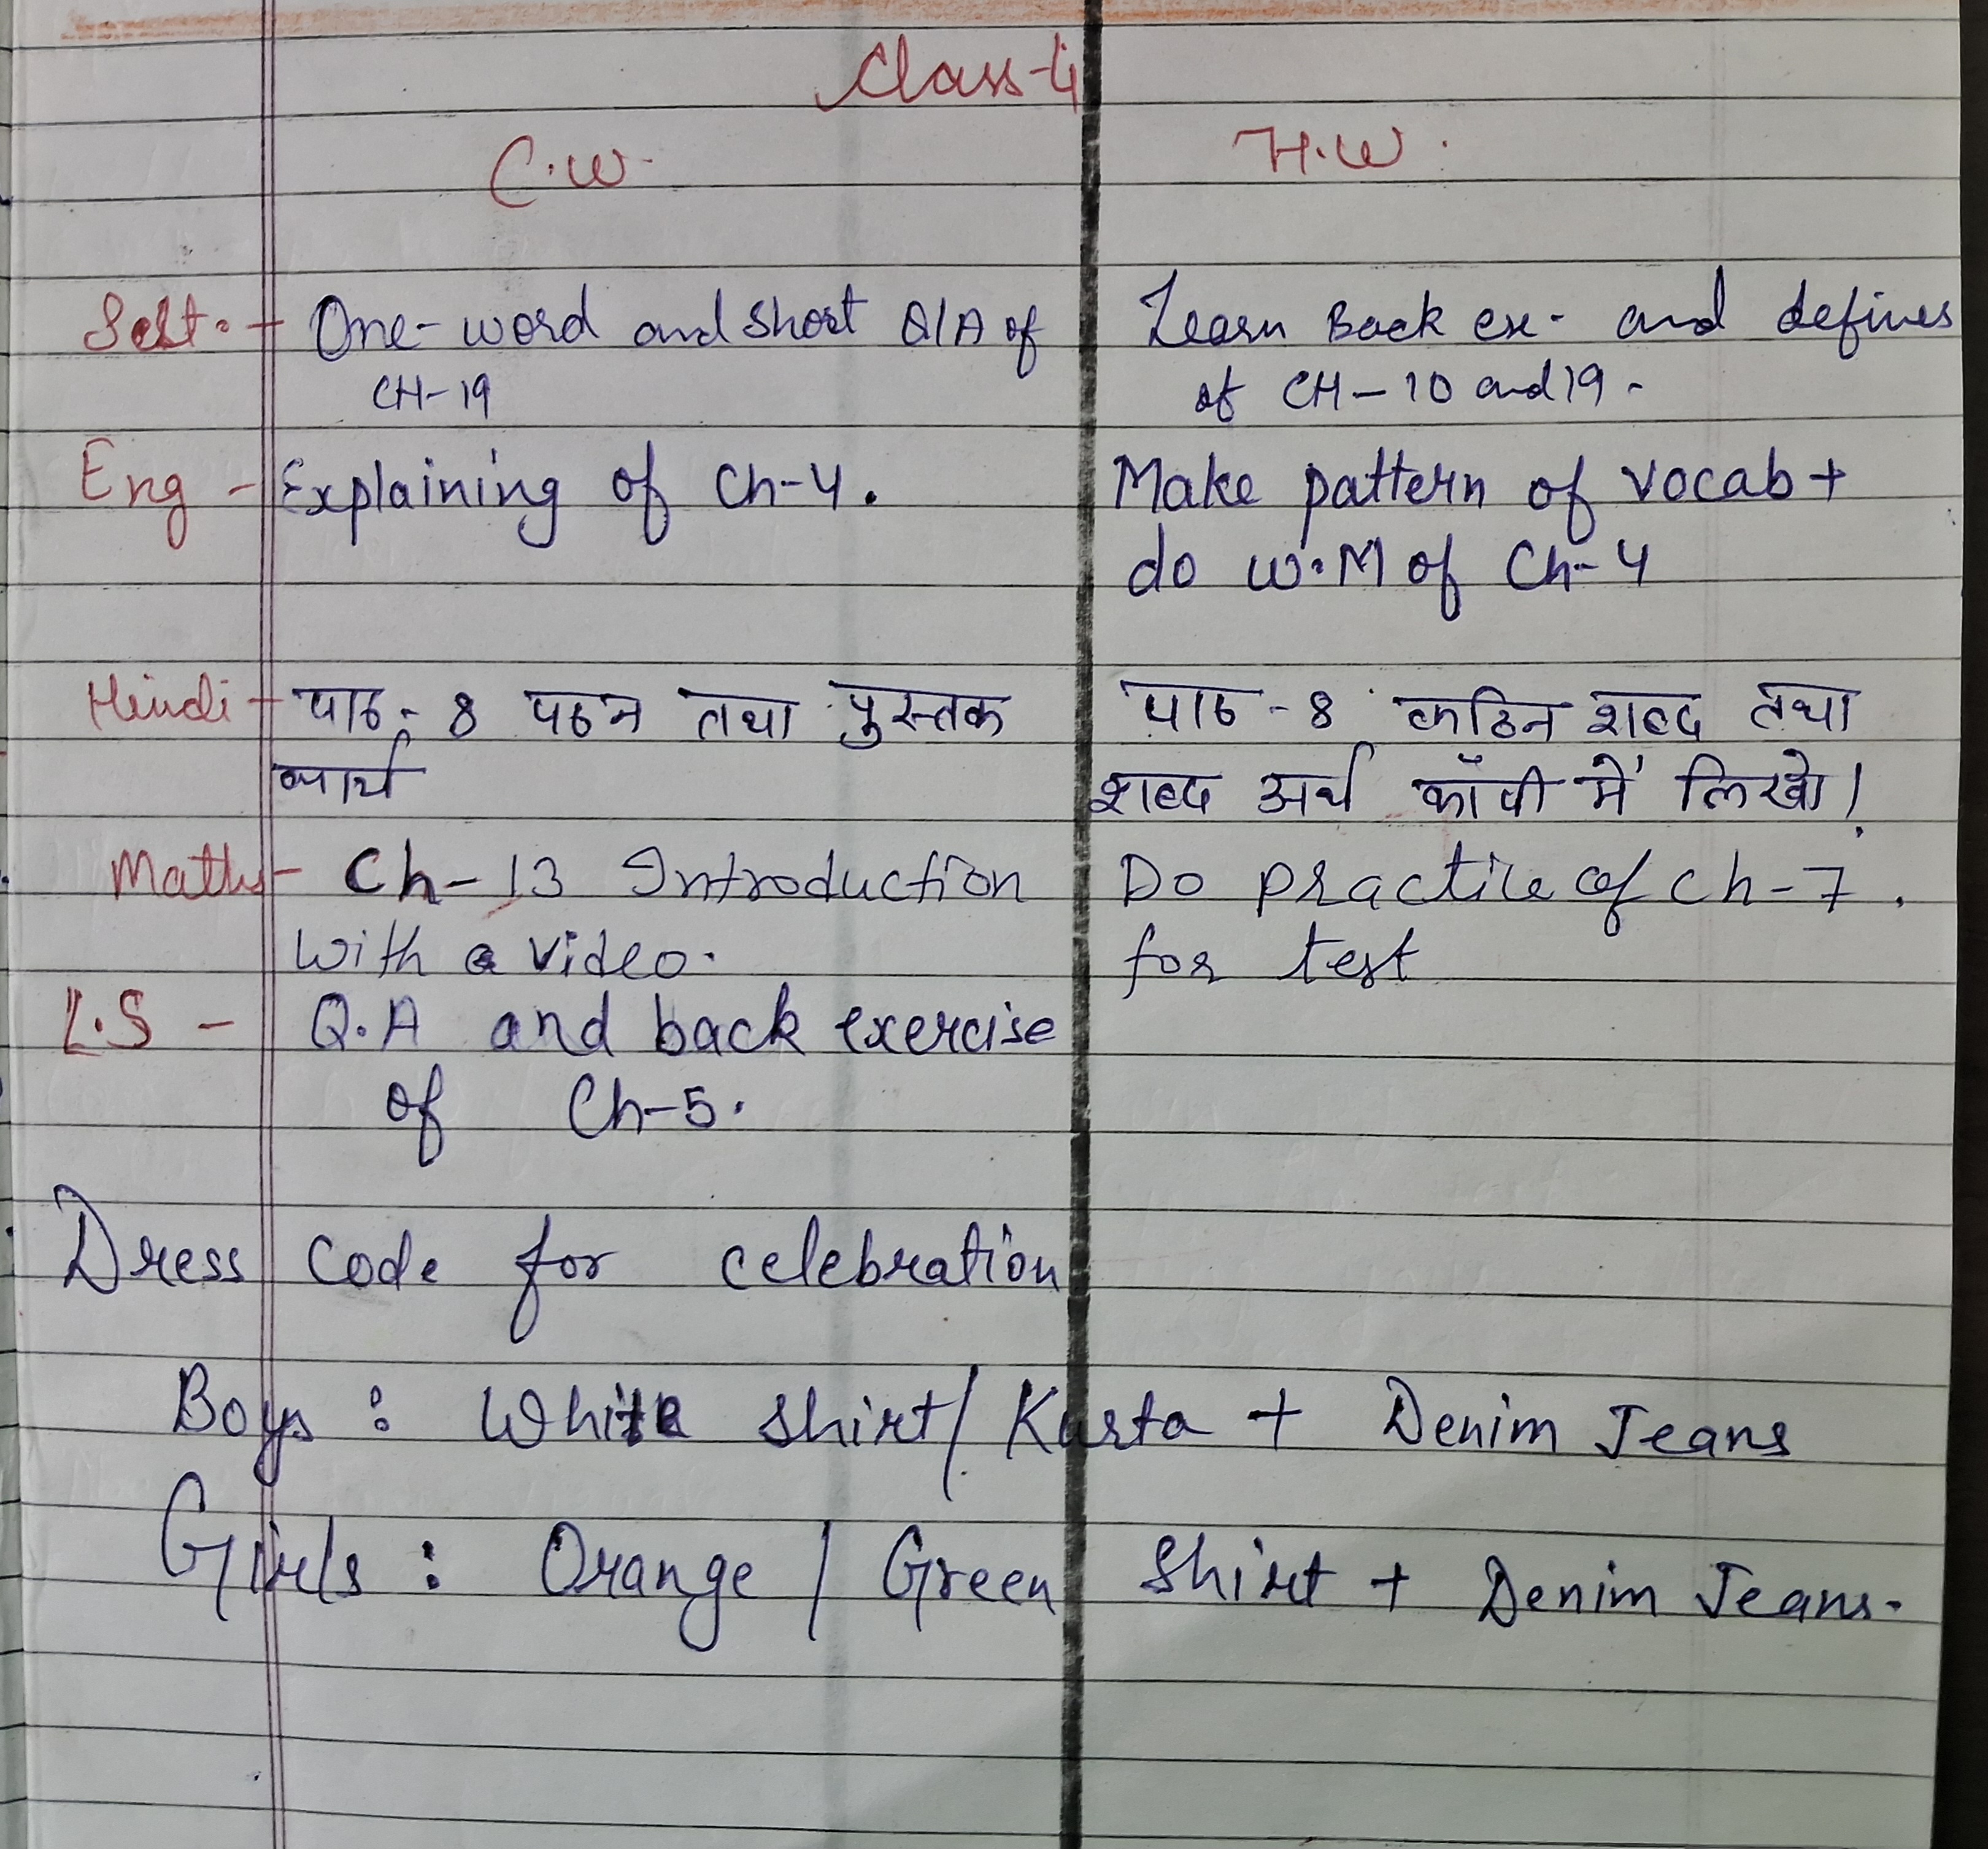 Class-4
C.W.
H.W.
Sst. - One-word and short Q/A of
CH-19
Learn Back ex. and defines
of CH-10 and 19.
Eng - Explaining of Ch-4.
Make pattern of vocab +
do W.M of Ch-4
Hindi - पाठ - 8 पठन तथा पुस्तक
कार्य
पाठ - 8 कठिन शब्द तथा
शब्द अर्थ कॉपी में लिखो।
Maths - Ch-13 Introduction
with a video.
Do practice of ch-7.
for test
L.S - Q.A and back exercise
of Ch-5.
Dress code for celebration
Boys : White shirt/Kurta + Denim Jeans
Girls : Orange / Green Shirt + Denim Jeans.